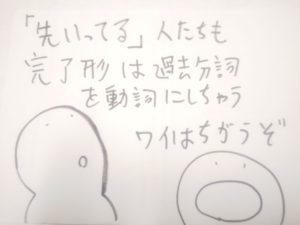 「先いってる」人たちも
完了形は過去分詞
を動詞にしちゃう
ワイはちがうぞ